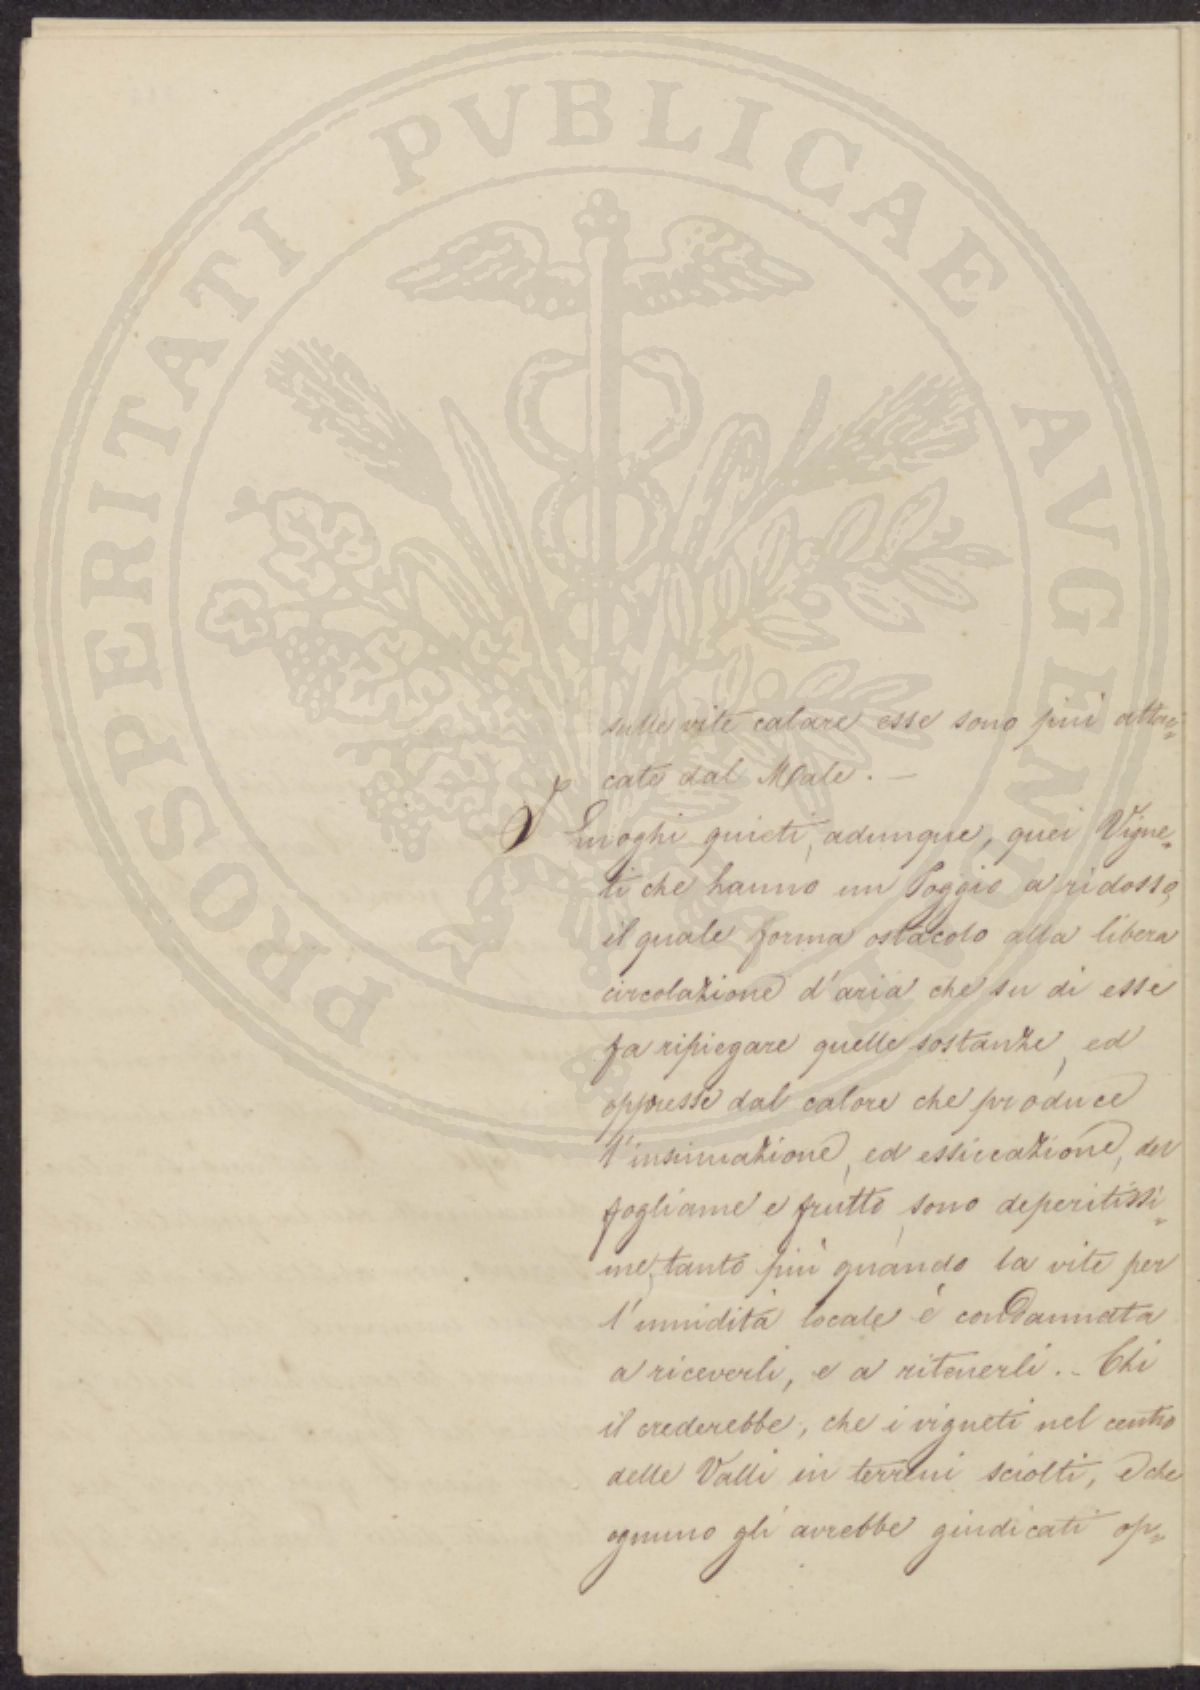 PROSPERITATI PVBLICAE AVGENDAE
sulle vite calare esse sono più attac=
cate dal Male. —
I Luoghi quieti, adunque, quei Vigne=
ti che hanno un Poggio a ridosso,
il quale forma ostacolo alla libera
circolazione d'aria che su di esse
fa ripiegare quelle sostanze, ed
oppresse dal calore che produce
l'insinuazione, ed essiccazione, del
fogliame e frutto, sono deperitissi=
me, tanto più quando la vite per
l'umidità locale è condannata
a riceverli, e a ritenerli. – Chi
il crederebbe, che i vigneti nel centro
delle Valli in terreni sciolti, e che
ognuno gli avrebbe giudicati op=